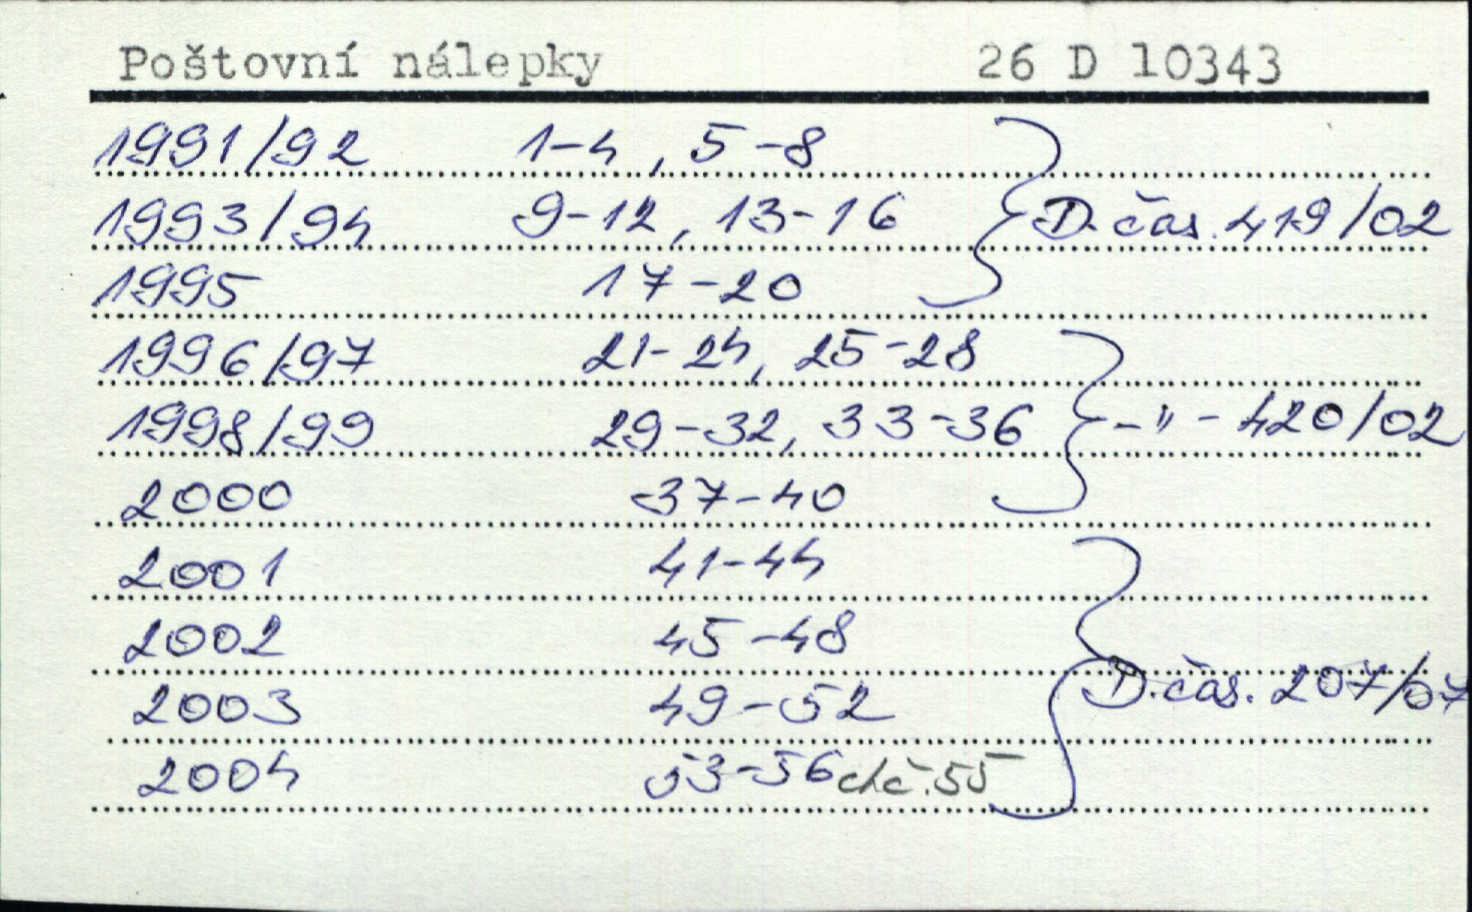 Poštovní nálepky 26 D 10343
1991/92 1-4, 5-8
1993/94 9-12, 13-16 D. čas. 419/02
1995 17-20
1996/97 21-24, 25-28
1998/99 29-32, 33-36 -"- 420/02
2000 37-40
2001 41-44
2002 45-48
2003 49-52 D. čas. 207/07
2004 53-56 ch.č. 55